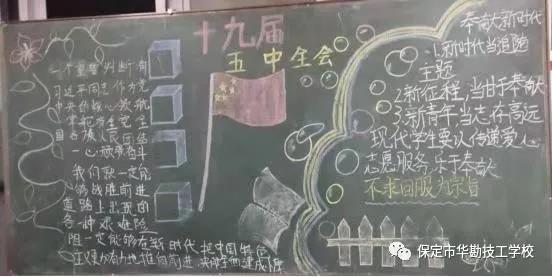 十九届
五中全会
一个重要判断:有
习近平同志作为党
中央的核心领航
掌舵,有全党全
国各族人民团结
一心顽强奋斗
我们就一定能
够战胜前进
道路上出现的
各种艰难险
阻一定能够在新时代把中国特色
奉献新时代
1.新时代当追随
主题
2.新征程,当甘于奉献
3.新青年当志存高远
现代学生要以传递爱心
志愿服务乐于奉献
不求回服为宗旨
保定市华勘技工学校